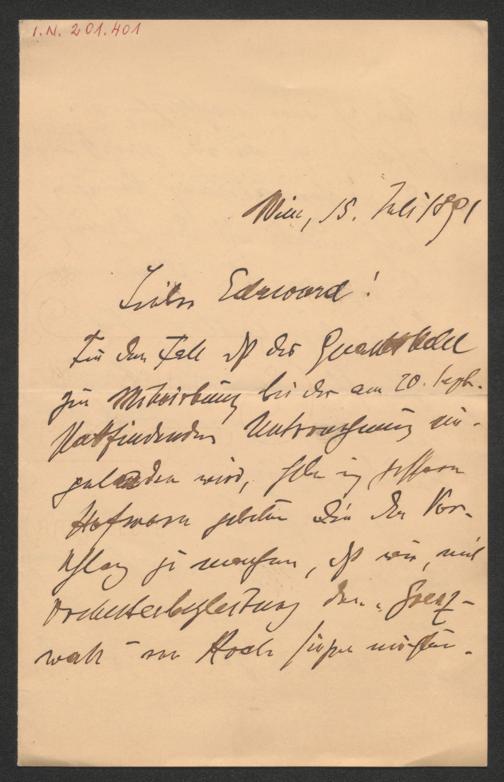 I.N. 201.401
Wien, 15. Juli 1891
Lieber Edward!
Für den Fall daß das Quartett
zur Mitwirkung bei der am 20. Sept.
stattfindenden Unternehmung ein-
geladen wird, habe ich Herrn
Hofmann gebeten Dir den Vor-
schlag zu machen, daß wir, mit
Orchesterbegleitung den „Grenz-
wall" von Koch singen möchten.